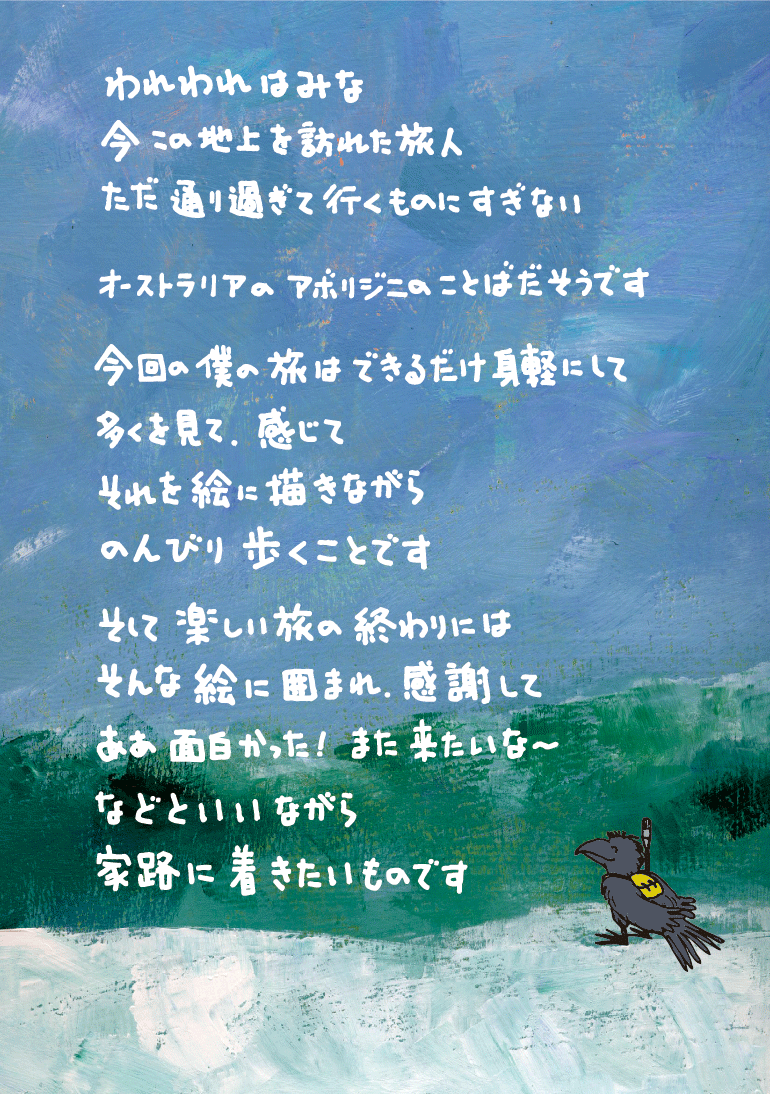 われわれはみな
今この地上を訪れた旅人
ただ通り過ぎて行くものにすぎない
オーストラリアのアボリジニのことばだそうです
今回の僕の旅はできるだけ身軽にして
多くを見て、感じて
それを絵に描きながら
のんびり歩くことです
そして楽しい旅の終わりには
そんな絵に囲まれ、感謝して
ああ面白かった！また来たいな〜
などといいながら
家路に着きたいものです